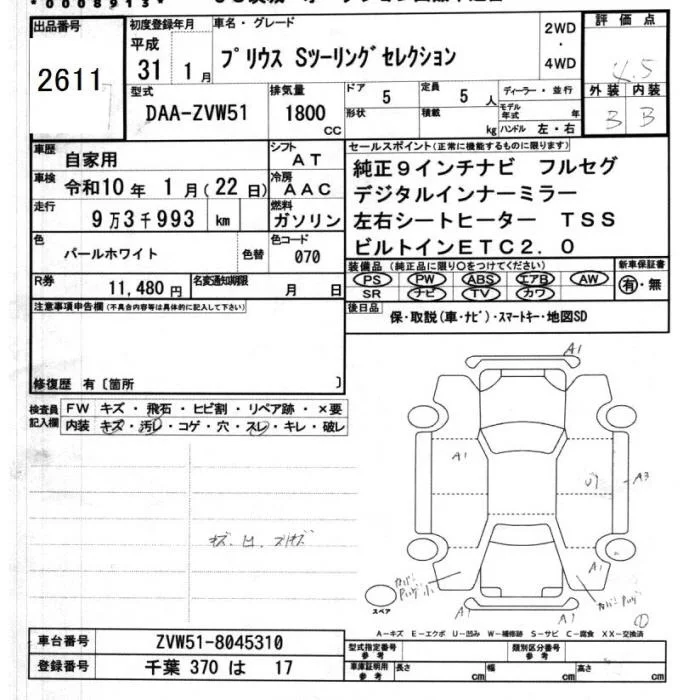 *0008913*
出品番号
2611
初度登録年月
平成
31 1月
車名・グレード
プリウス Sツーリングセレクション
2WD
・
4WD
評価点
4.5
外装 内装
B B
型式
DAA-ZVW51
排気量
1800
cc
ドア 5
形状
定員 5人
積載 kg
ディーラー・並行
モデル年式 年
ハンドル 左・右
車歴 自家用
シフト AT
車検 令和10年 1月(22日)
冷房 AAC
走行 9万3千993 km
燃料 ガソリン
色 パールホワイト 色替
色コード 070
R券 11,480円
名変通知期限 月 日
セールスポイント(正常に機能するものに限ります)
純正9インチナビ フルセグ
デジタルインナーミラー
左右シートヒーター TSS
ビルトインETC2.0
装備品 (純正品に限り○をつけてください)
PS PW ABS エアB AW
SR ナビ TV カワ
新車保証書
有・無
後日品 保・取説(車・ナビ)・スマートキー・地図SD
注意事項申告欄(不具合内容等は具体的に記入して下さい)
修復歴 有〔箇所 〕
検査員記入欄
FW キズ・飛石・ヒビ割・リペア跡・×要
内装 キズ・汚レ・コゲ・穴・スレ・キレ・破レ
A1
A1
A3
A1
A1
スペア
A-キズ E-エクボ U-凹み W-補修跡 S-サビ C-腐食 XX-交換済
車台番号 ZVW51-8045310
登録番号 千葉 370 は 17
型式指定番号 参考
類別区分番号 参考
車庫証明用 参考 長さ cm 幅 cm 高さ cm